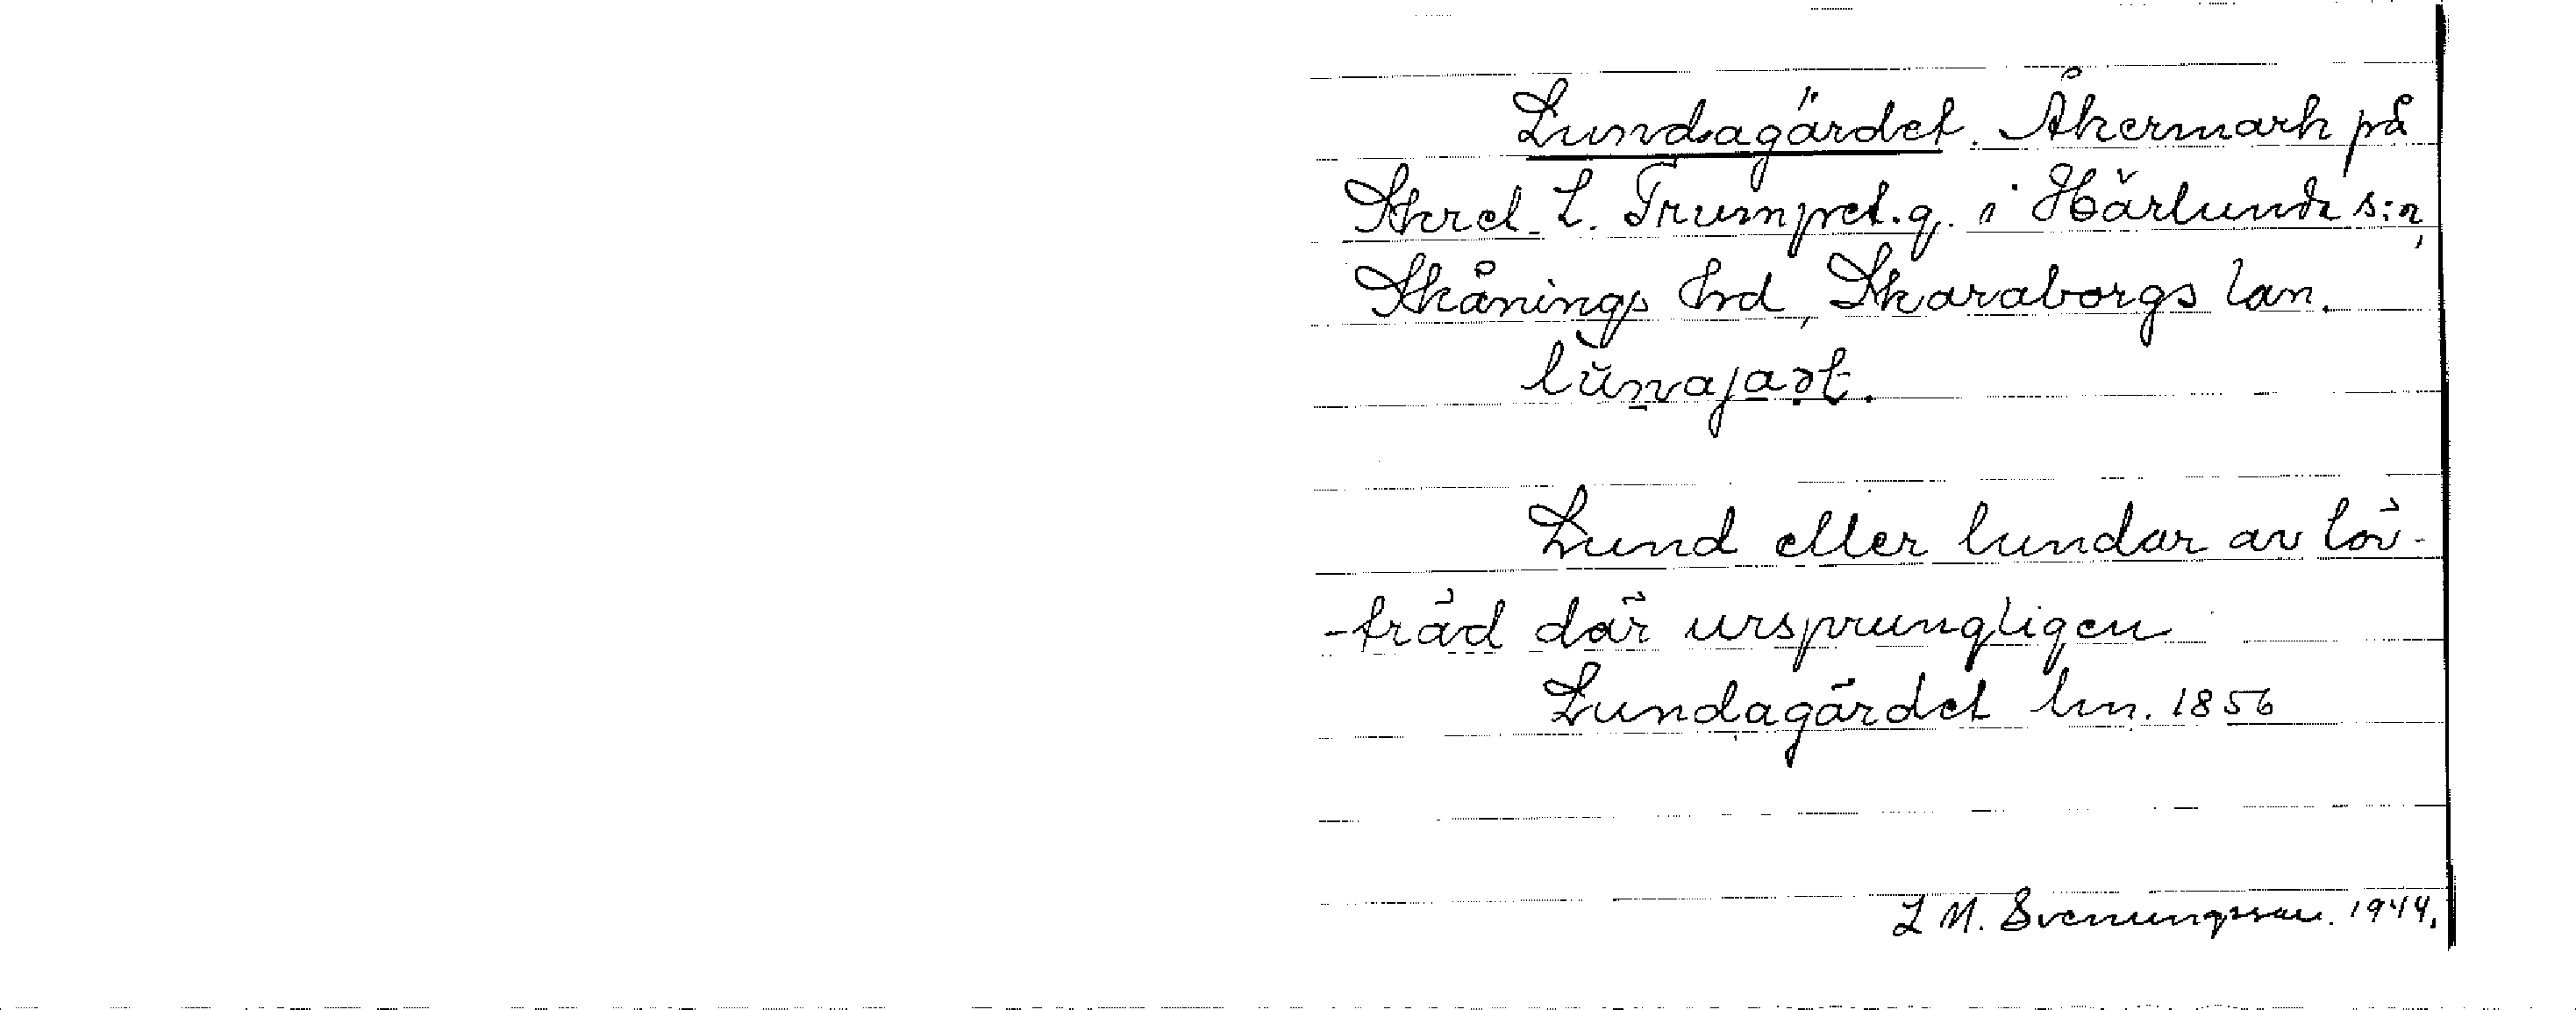 Lundagärdet. Åkermark på
Skrel. L. Trumpet.g. i Härlunda s:n,
Skånings hrd, Skaraborgs lan.
Lund eller lundar av löv-
-träd där ursprungligen
Lundagärdet lm. 1856
L M. Svenungsson. 1944.